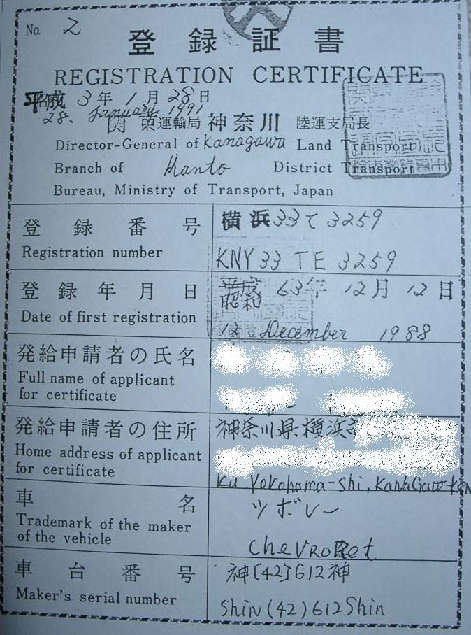 No. 2
登録証書
REGISTRATION CERTIFICATE
平成 3年 1月 28日
28. January 1991
関東運輸局 神奈川 陸運支局長
Director-General of Kanagawa Land Transport
Branch of Kanto District Transport
Bureau, Ministry of Transport, Japan
登録番号 横浜33て3259
Registration number KNY 33 TE 3259
登録年月日 昭和 63年 12月 12日
Date of first registration 12 December 1988
発給申請者の氏名
Full name of applicant
for certificate
発給申請者の住所 神奈川県横浜市
Home address of applicant
for certificate Ku Yokohama-Shi, Kanagawa-Ken
車名 シボレー
Trademark of the maker
of the vehicle Chevrolet
車台番号 神[42]612神
Maker's serial number Shin (42) 612 Shin